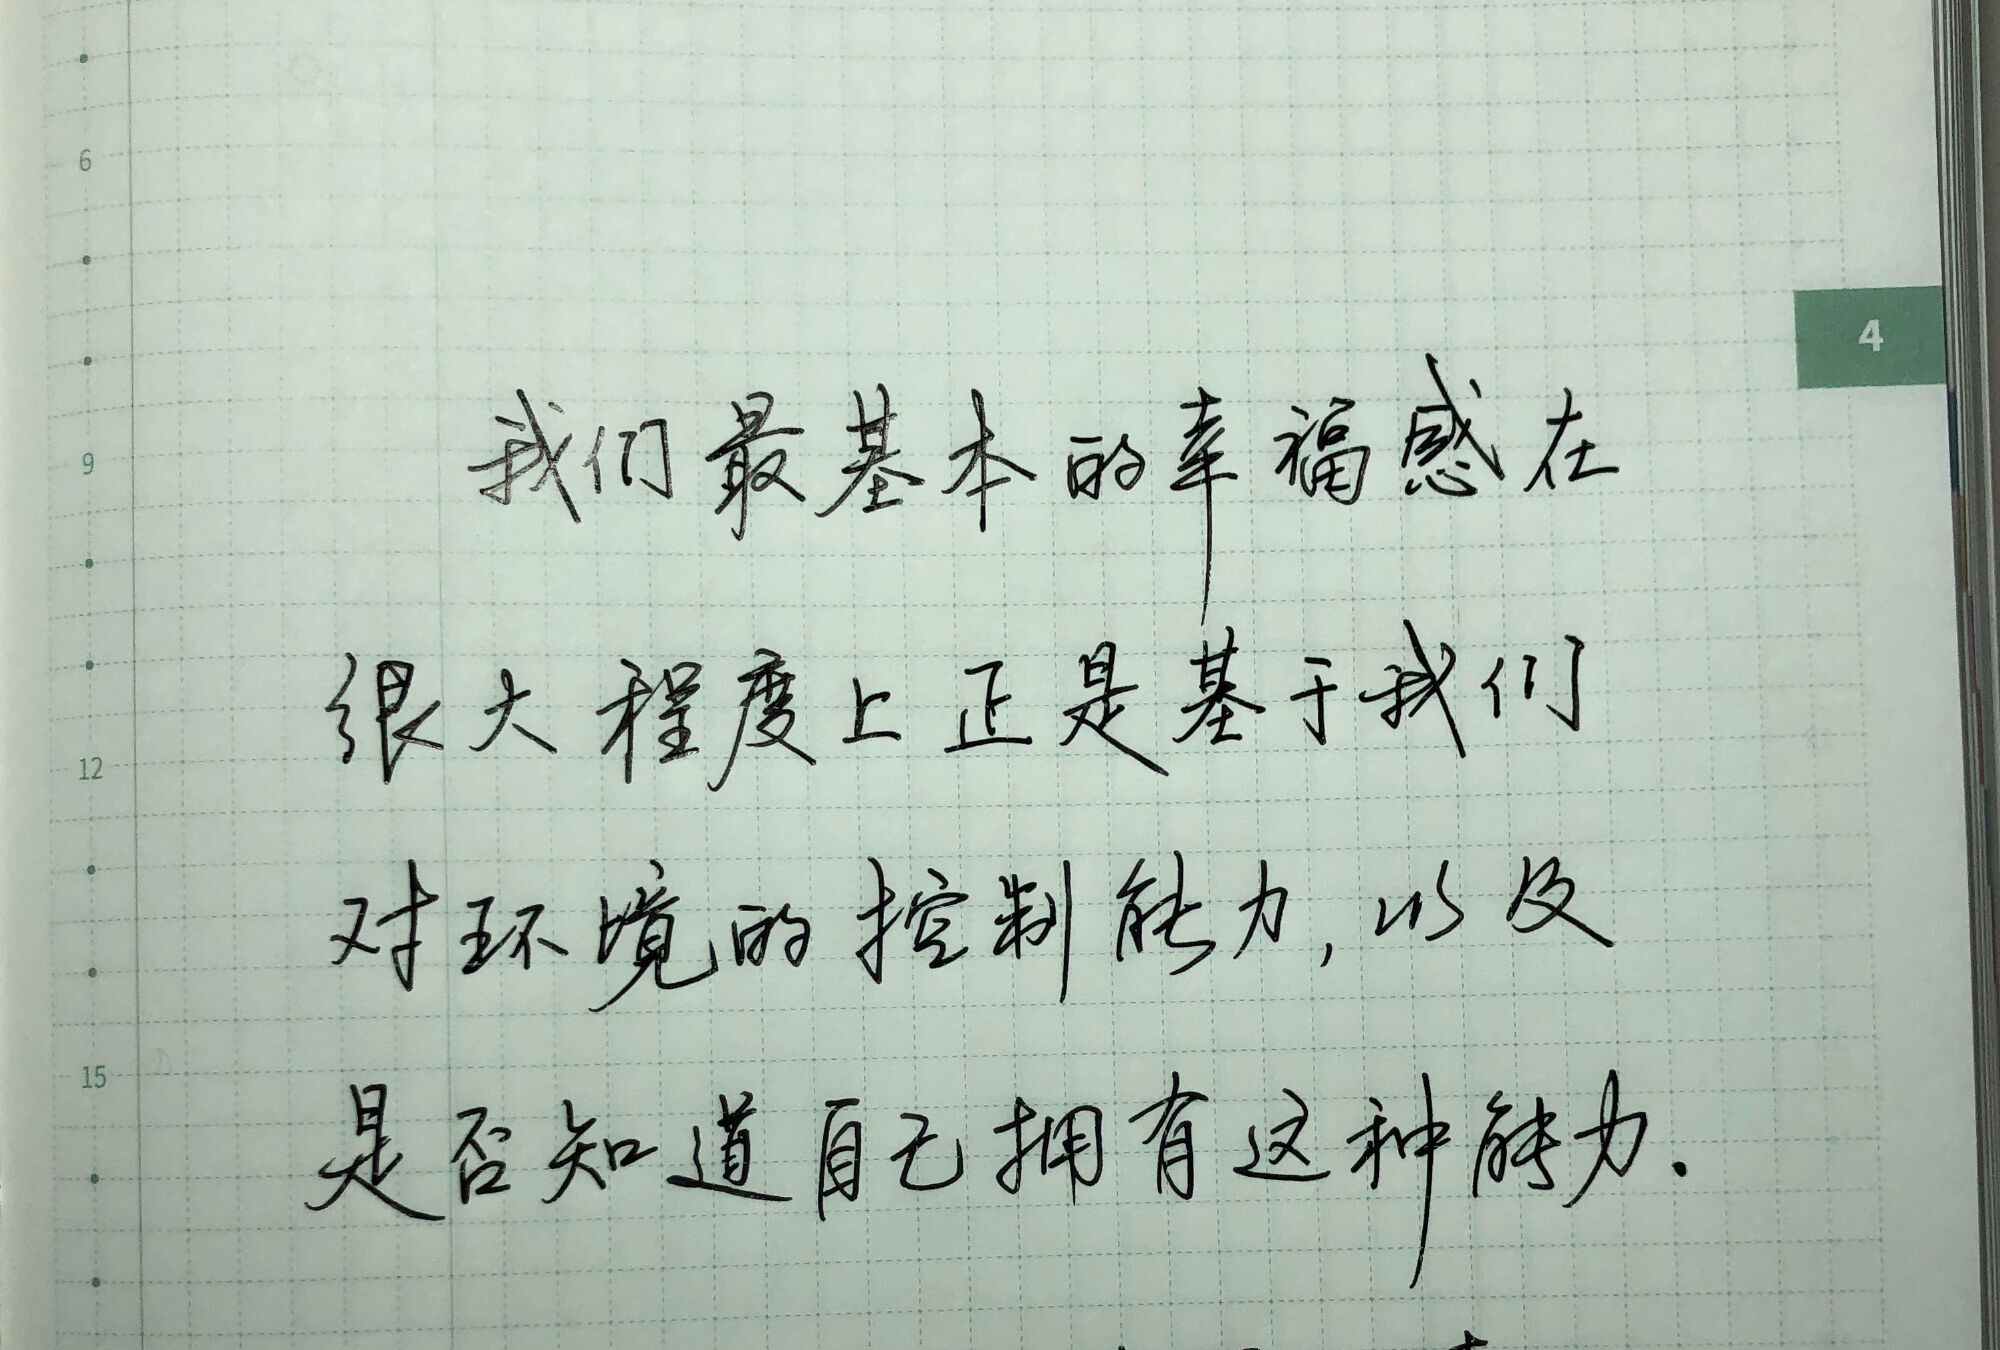 6
4
我们最基本的幸福感在
9
很大程度上正是基于我们
12
对环境的控制能力,以及
15
是否知道自己拥有这种能力.